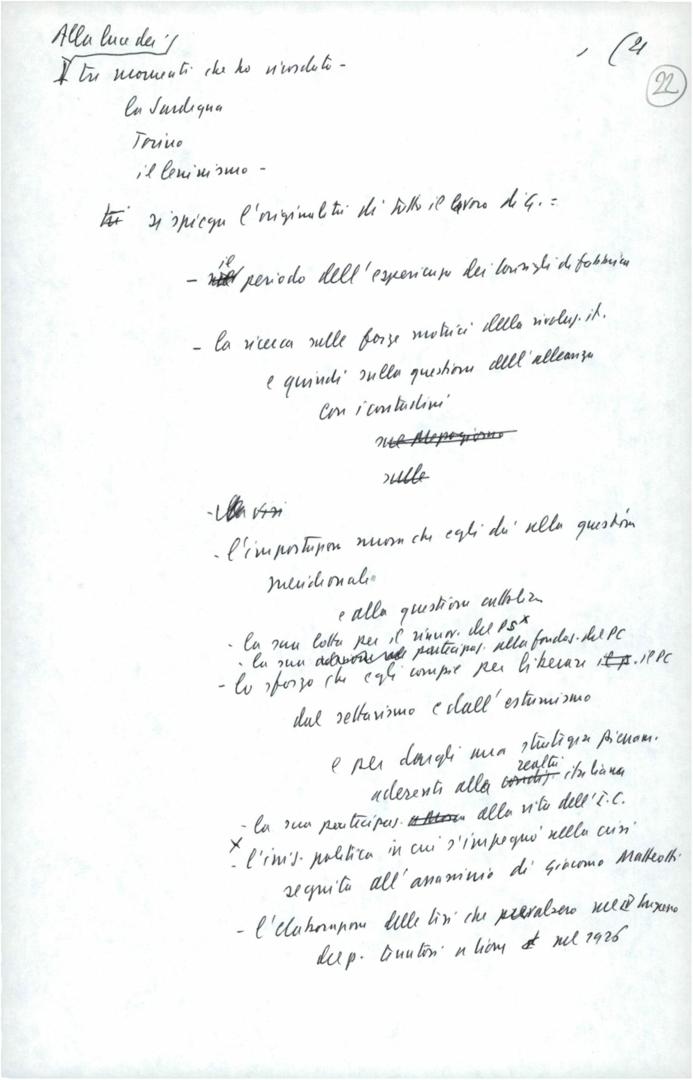 Alla luce dei
(21
22
I tre momenti che ho ricordato -
la Sardegna
Torino
il leninismo -
si spiega l'originalità di tutto il lavoro di G. =
- il periodo dell'esperienza dei Consigli di fabbrica
- la ricerca sulle forze motrici della rivoluz. it.
e quindi sulla questione dell'alleanza
con i contadini
sul Mezzogiorno
sulle
- l'impostazione nuova che egli dà alla questione
meridionale
e alla questione cattolica
- la sua lotta per il rinnov. del PS x
- la sua partecipaz. alla fondaz. del PC
- lo sforzo che egli compie per liberare il p. il PC
dal settarismo e dall'estremismo
e per dargli una strategia pienam.
realtà
aderente alla condiz. italiana
- la sua partecipaz. alla vita dell'I.C.
x
- l'iniz. politica in cui s'impegnò nella crisi
seguita all'assassinio di Giacomo Matteotti
- l'elaborazione delle tesi che prevalsero nel III Congresso
del p. tenutosi a Lione nel 1926